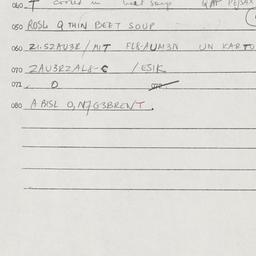 050 ROSL 9 THIN BEET SOUP
060 ZI:SZAU3R/MIT FL8/UM3N UN KARTO
070 ZAU3RZAL8-C /ESIK
071 O
080 A BISL O,N7G3BRENT.